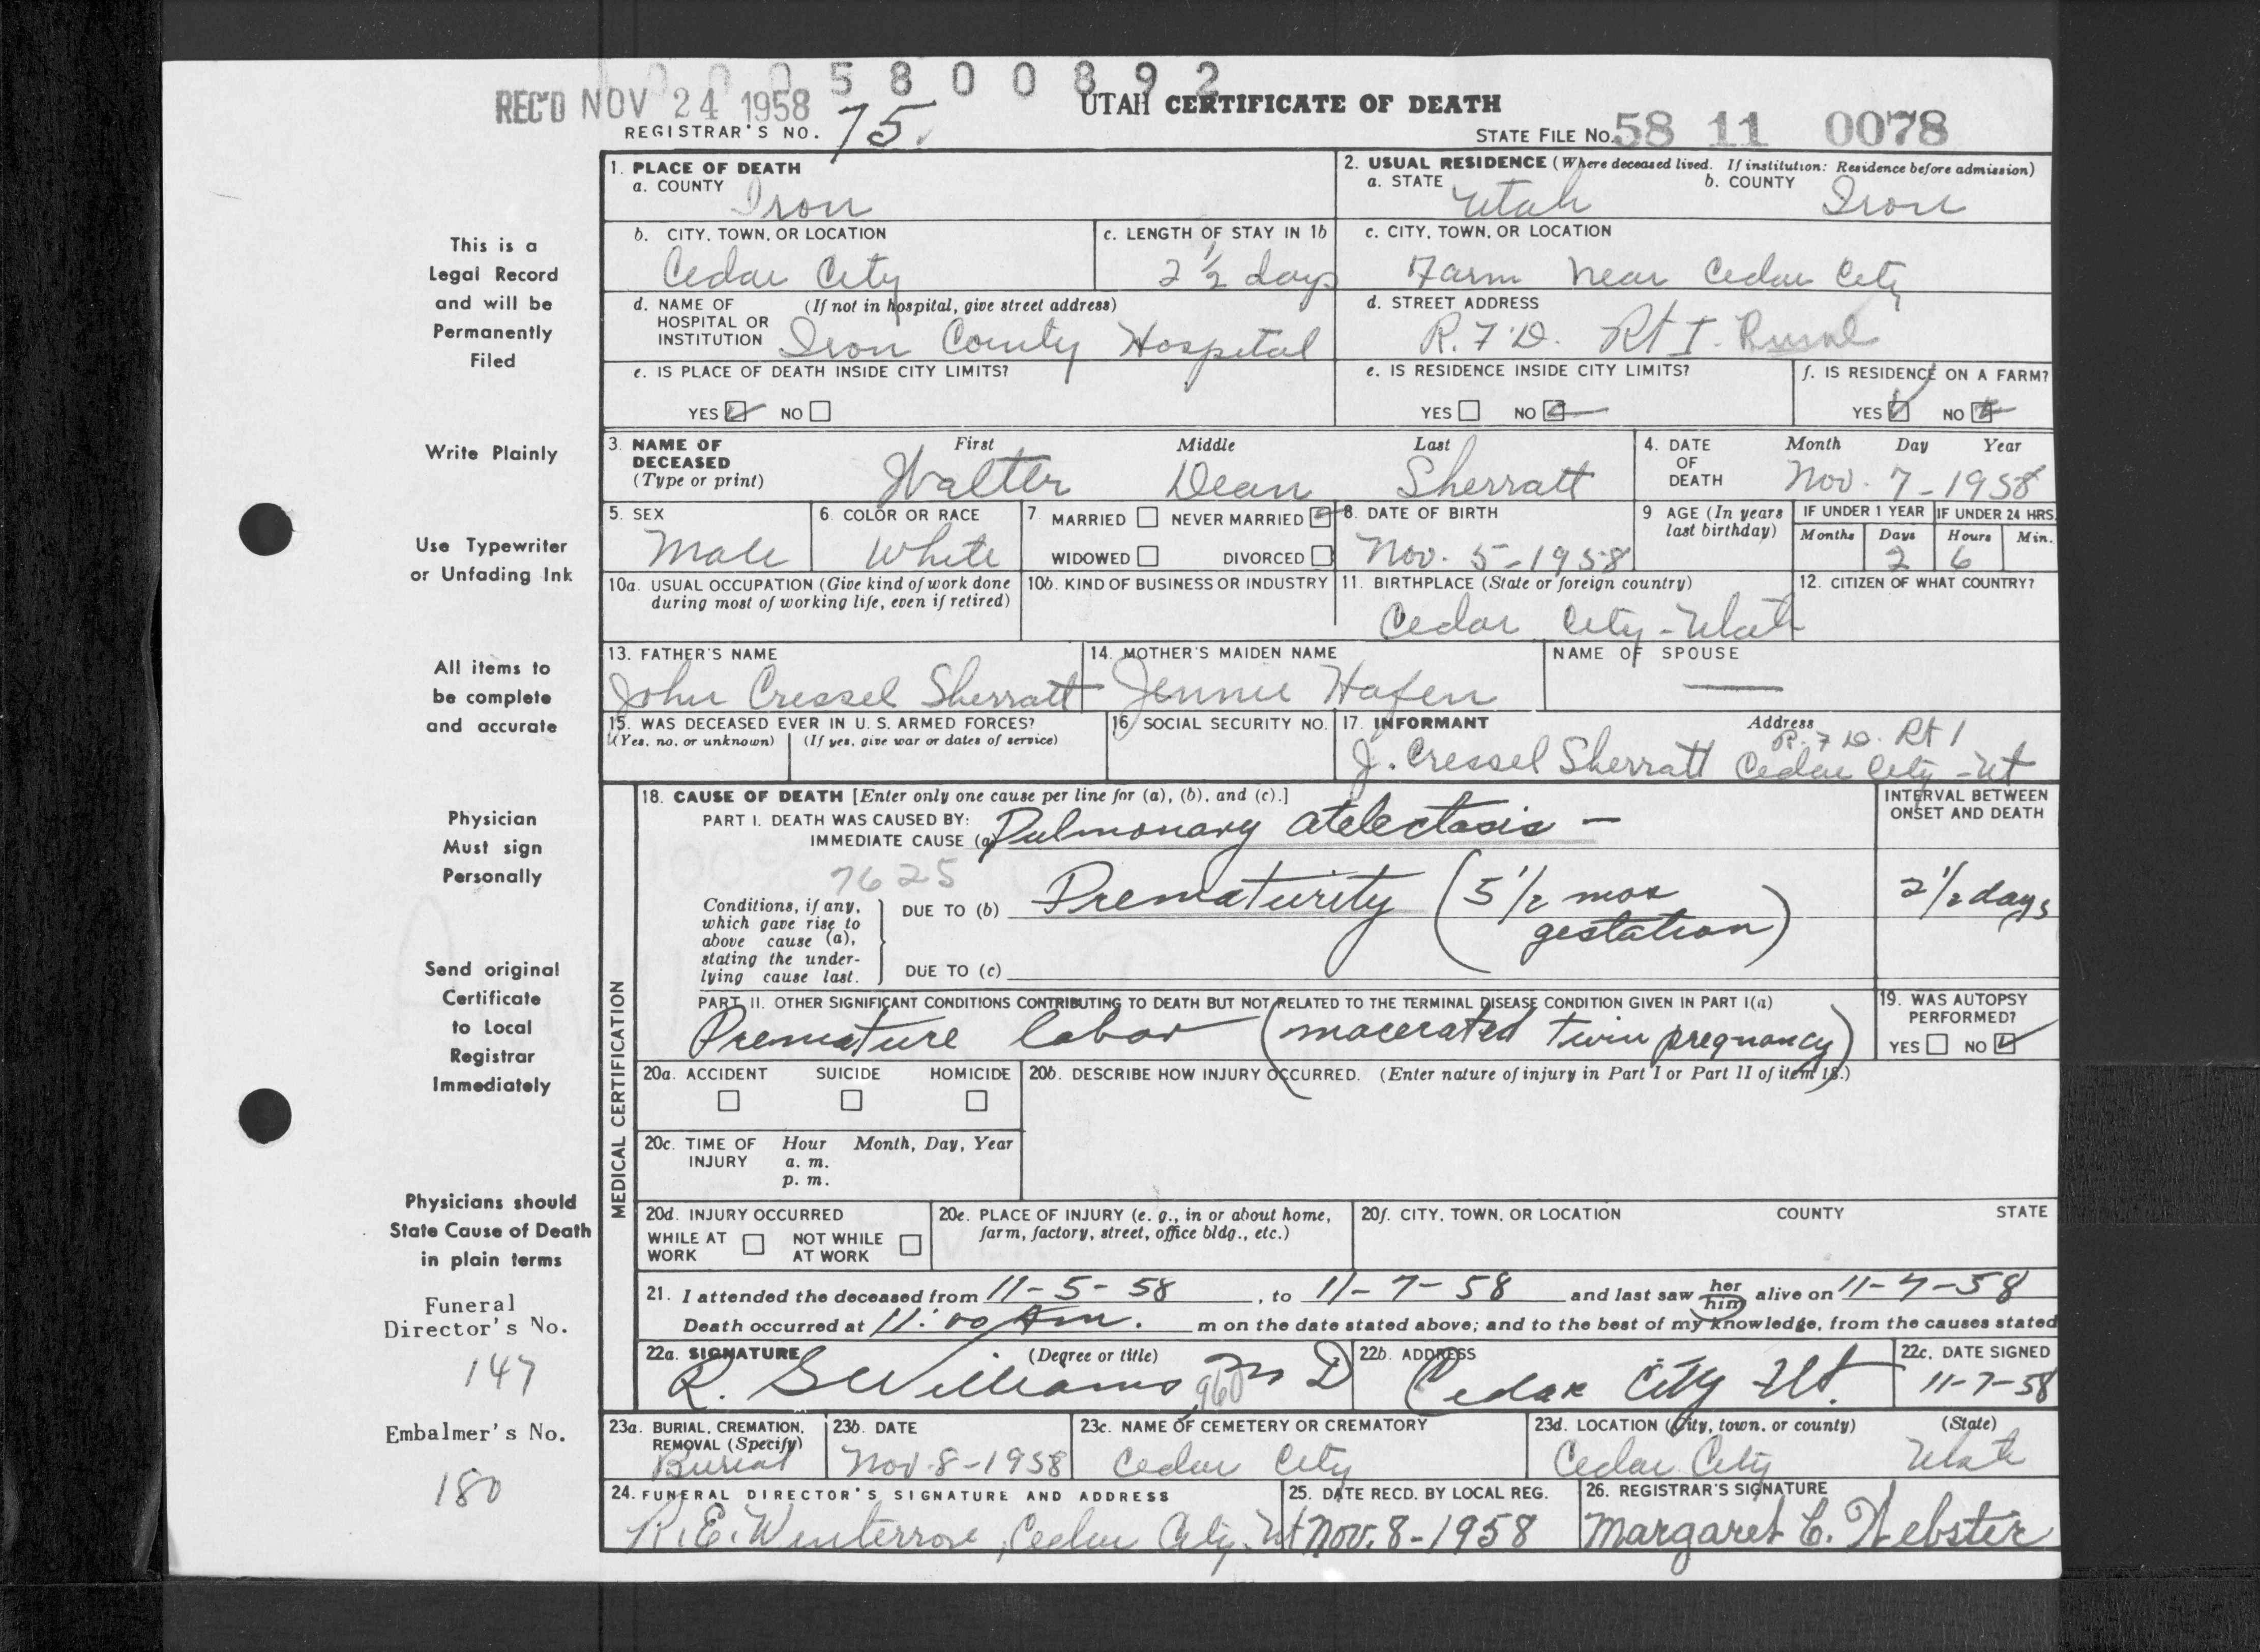 0 0 0 5 8 0 0 8 9 2
REC'D NOV 24 1958
UTAH CERTIFICATE OF DEATH
REGISTRAR'S NO. 75.
STATE FILE NO. 58 11 0078
This is a
Legal Record
and will be
Permanently
Filed
Write Plainly
Use Typewriter
or Unfading Ink
All items to
be complete
and accurate
Physician
Must sign
Personally
Send original
Certificate
to Local
Registrar
Immediately
Physicians should
State Cause of Death
in plain terms
Funeral
Director's No.
147
Embalmer's No.
180
1. PLACE OF DEATH
a. COUNTY Iron
2. USUAL RESIDENCE (Where deceased lived. If institution: Residence before admission)
a. STATE Utah b. COUNTY Iron
b. CITY, TOWN, OR LOCATION
Cedar City
c. LENGTH OF STAY IN 1b
2 1/2 days
c. CITY, TOWN, OR LOCATION
Farm Near Cedar City
d. NAME OF (If not in hospital, give street address)
HOSPITAL OR
INSTITUTION Iron County Hospital
d. STREET ADDRESS
R.F.D. Rt I. Rural
e. IS PLACE OF DEATH INSIDE CITY LIMITS?
YES NO
e. IS RESIDENCE INSIDE CITY LIMITS?
YES NO
f. IS RESIDENCE ON A FARM?
YES NO
3. NAME OF DECEASED (Type or print)
First Middle Last
Walter Dean Sherratt
4. DATE OF DEATH
Month Day Year
Nov. 7-1958
5. SEX
Male
6. COLOR OR RACE
White
7. MARRIED NEVER MARRIED
WIDOWED DIVORCED
8. DATE OF BIRTH
Nov. 5-1958
9 AGE (In years
last birthday)
IF UNDER 1 YEAR IF UNDER 24 HRS.
Months Days Hours Min.
2 6
10a. USUAL OCCUPATION (Give kind of work done
during most of working life, even if retired)
10b. KIND OF BUSINESS OR INDUSTRY
11. BIRTHPLACE (State or foreign country)
Cedar City-Utah
12. CITIZEN OF WHAT COUNTRY?
13. FATHER'S NAME
John Cressel Sherratt
14. MOTHER'S MAIDEN NAME
Jennie Hafen
NAME OF SPOUSE
—
15. WAS DECEASED EVER IN U. S. ARMED FORCES?
(Yes, no, or unknown) (If yes, give war or dates of service)
16 SOCIAL SECURITY NO.
17. INFORMANT Address
R.F.D. Rt 1
J. Cressel Sherratt Cedar City-Ut
MEDICAL CERTIFICATION
18. CAUSE OF DEATH [Enter only one cause per line for (a), (b), and (c).]
PART I. DEATH WAS CAUSED BY:
IMMEDIATE CAUSE (a) Pulmonary atelectasis -
INTERVAL BETWEEN
ONSET AND DEATH
7625
Conditions, if any,
which gave rise to
above cause (a),
stating the under-
lying cause last.
DUE TO (b) Prematurity (5 1/2 mos
gestation)
2 1/2 days
DUE TO (c)
PART II. OTHER SIGNIFICANT CONDITIONS CONTRIBUTING TO DEATH BUT NOT RELATED TO THE TERMINAL DISEASE CONDITION GIVEN IN PART I(a)
Premature labor (macerated twin pregnancy)
19. WAS AUTOPSY
PERFORMED?
YES NO
20a. ACCIDENT SUICIDE HOMICIDE
20b. DESCRIBE HOW INJURY OCCURRED. (Enter nature of injury in Part I or Part II of item 18.)
20c. TIME OF INJURY
Hour Month, Day, Year
a. m.
p. m.
20d. INJURY OCCURRED
WHILE AT WORK NOT WHILE AT WORK
20e. PLACE OF INJURY (e. g., in or about home,
farm, factory, street, office bldg., etc.)
20f. CITY, TOWN, OR LOCATION COUNTY STATE
21. I attended the deceased from 11-5-58, to 11-7-58 and last saw her him alive on 11-7-58
Death occurred at 11:00 Am. m on the date stated above; and to the best of my knowledge, from the causes stated
22a. SIGNATURE (Degree or title)
R. S Williams M D
960
22b. ADDRESS
Cedar City Ut.
22c. DATE SIGNED
11-7-58
23a. BURIAL, CREMATION,
REMOVAL (Specify)
Burial
23b. DATE
Nov-8-1958
23c. NAME OF CEMETERY OR CREMATORY
Cedar City
23d. LOCATION (City, town, or county) (State)
Cedar City Utah
24. FUNERAL DIRECTOR'S SIGNATURE AND ADDRESS
R. E. Winterrose, Cedar City. Ut
25. DATE RECD. BY LOCAL REG.
Nov. 8-1958
26. REGISTRAR'S SIGNATURE
Margaret C. Webster